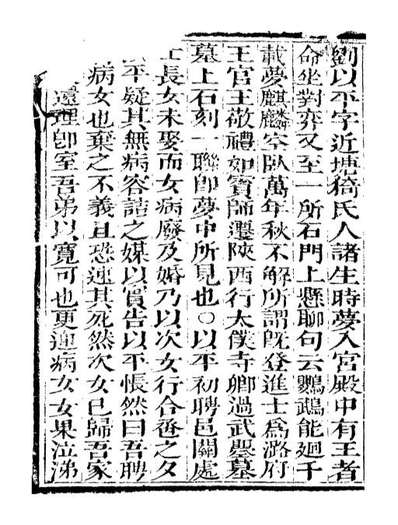 劉以平字近塘猗氏人諸生時夢入宮殿中有王者
命坐對弈又至一所石門上懸聯句云鸚鵡能迴千
載夢麒麟空臥萬年秋不解所謂旣登進士爲潞府
王官王敬禮如賓師遷陝西行太僕寺卿過武曌墓
墓上石刻一聯卽夢中所見也○以平初聘邑關處
士長女未娶而女病廢及婚乃以次女行合巹之夕
以平疑其無病容詰之媒以實告以平悵然曰吾聘
病女也棄之不義且恐速其死然次女已歸吾家
還理卽室吾弟以寬可也更迎病女女果泣涕